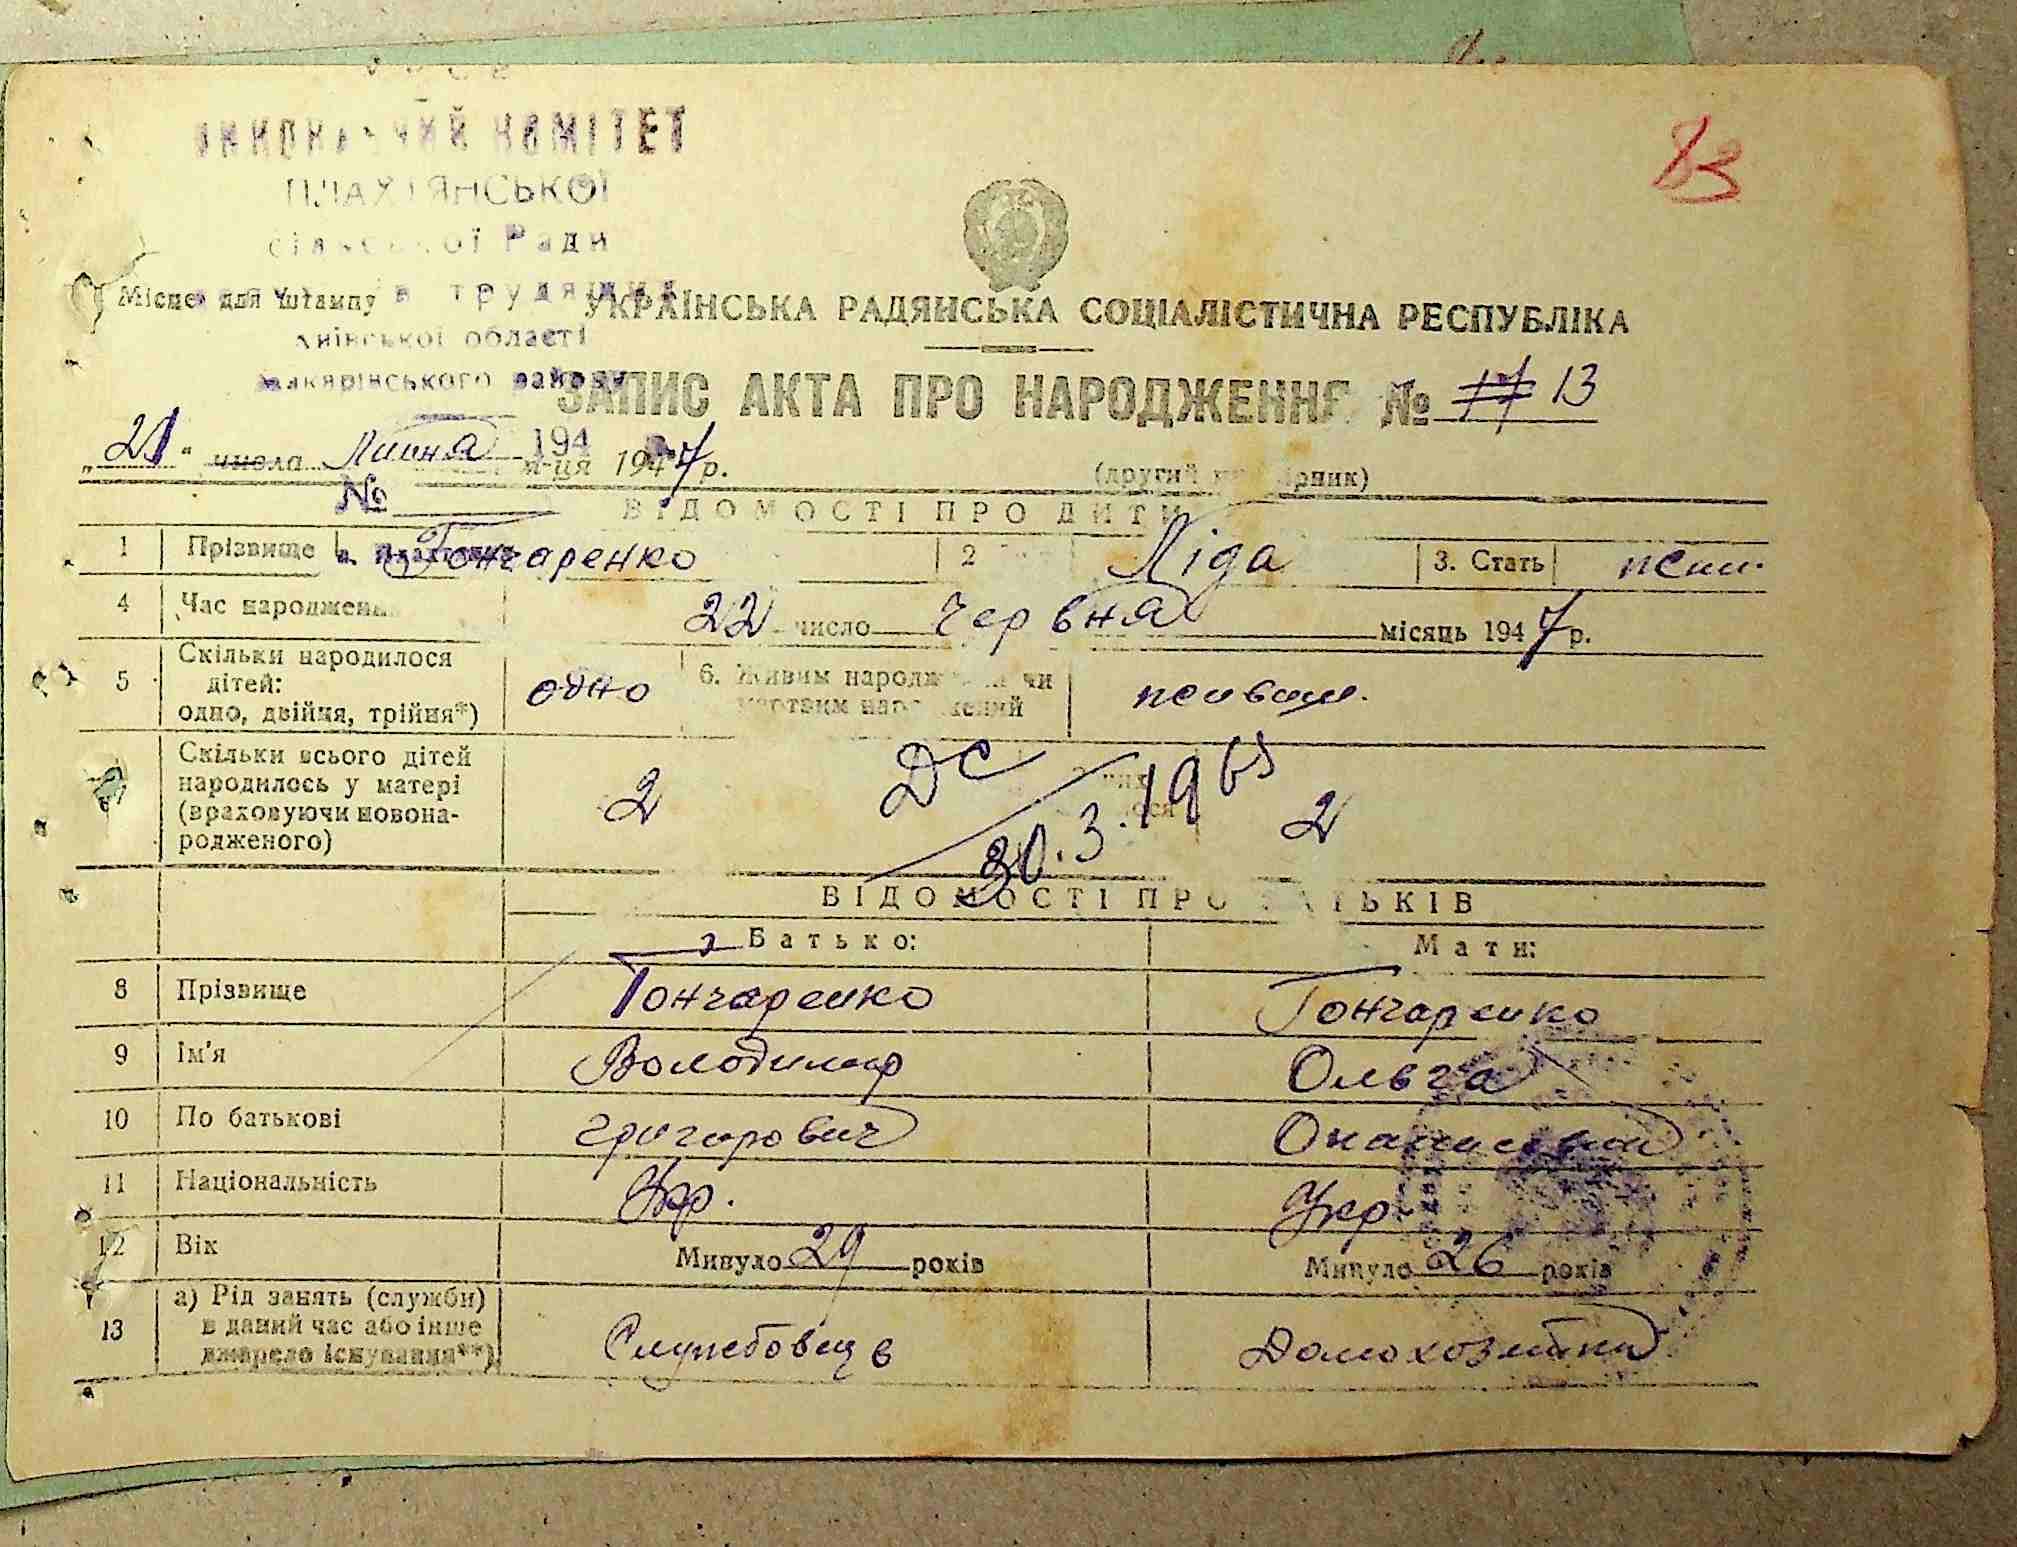 83
ВИКОНАВЧИЙ КОМІТЕТ
ПЛАХТЯНСЬКОЇ
сільської Ради
трудящих
Київської області
Макарівського району
Місце для штампу
УКРАЇНСЬКА РАДЯНСЬКА СОЦІАЛІСТИЧНА РЕСПУБЛІКА
ЗАПИС АКТА ПРО НАРОДЖЕННЯ № 17 13
„21“ числа Липня 194 м-ця 1947р.
(другий примірник)
№
ВІДОМОСТІ ПРО ДИТИНУ
1 Прізвище Гончаренко 2 Ліда 3. Стать жін.
4 Час народження 22 число Червня місяць 1947р.
5 Скільки народилося дітей: одно, двійня, трійня*) одно 6. Живим народжений чи мертвим народжений живим.
Скільки всього дітей народилось у матері (враховуючи новонародженого) 2 2
ДС
30.3.1965
ВІДОМОСТІ ПРО БАТЬКІВ
Батько: Мати:
8 Прізвище Гончаренко Гончаренко
9 Ім'я Володимир Ольга
10 По батькові Григорович
11 Національність Укр. Укр.
12 Вік Минуло 29 років Минуло 26 років
13 а) Рід занять (служби) в даний час або інше джерело існування**) Службовець Домохозяйка